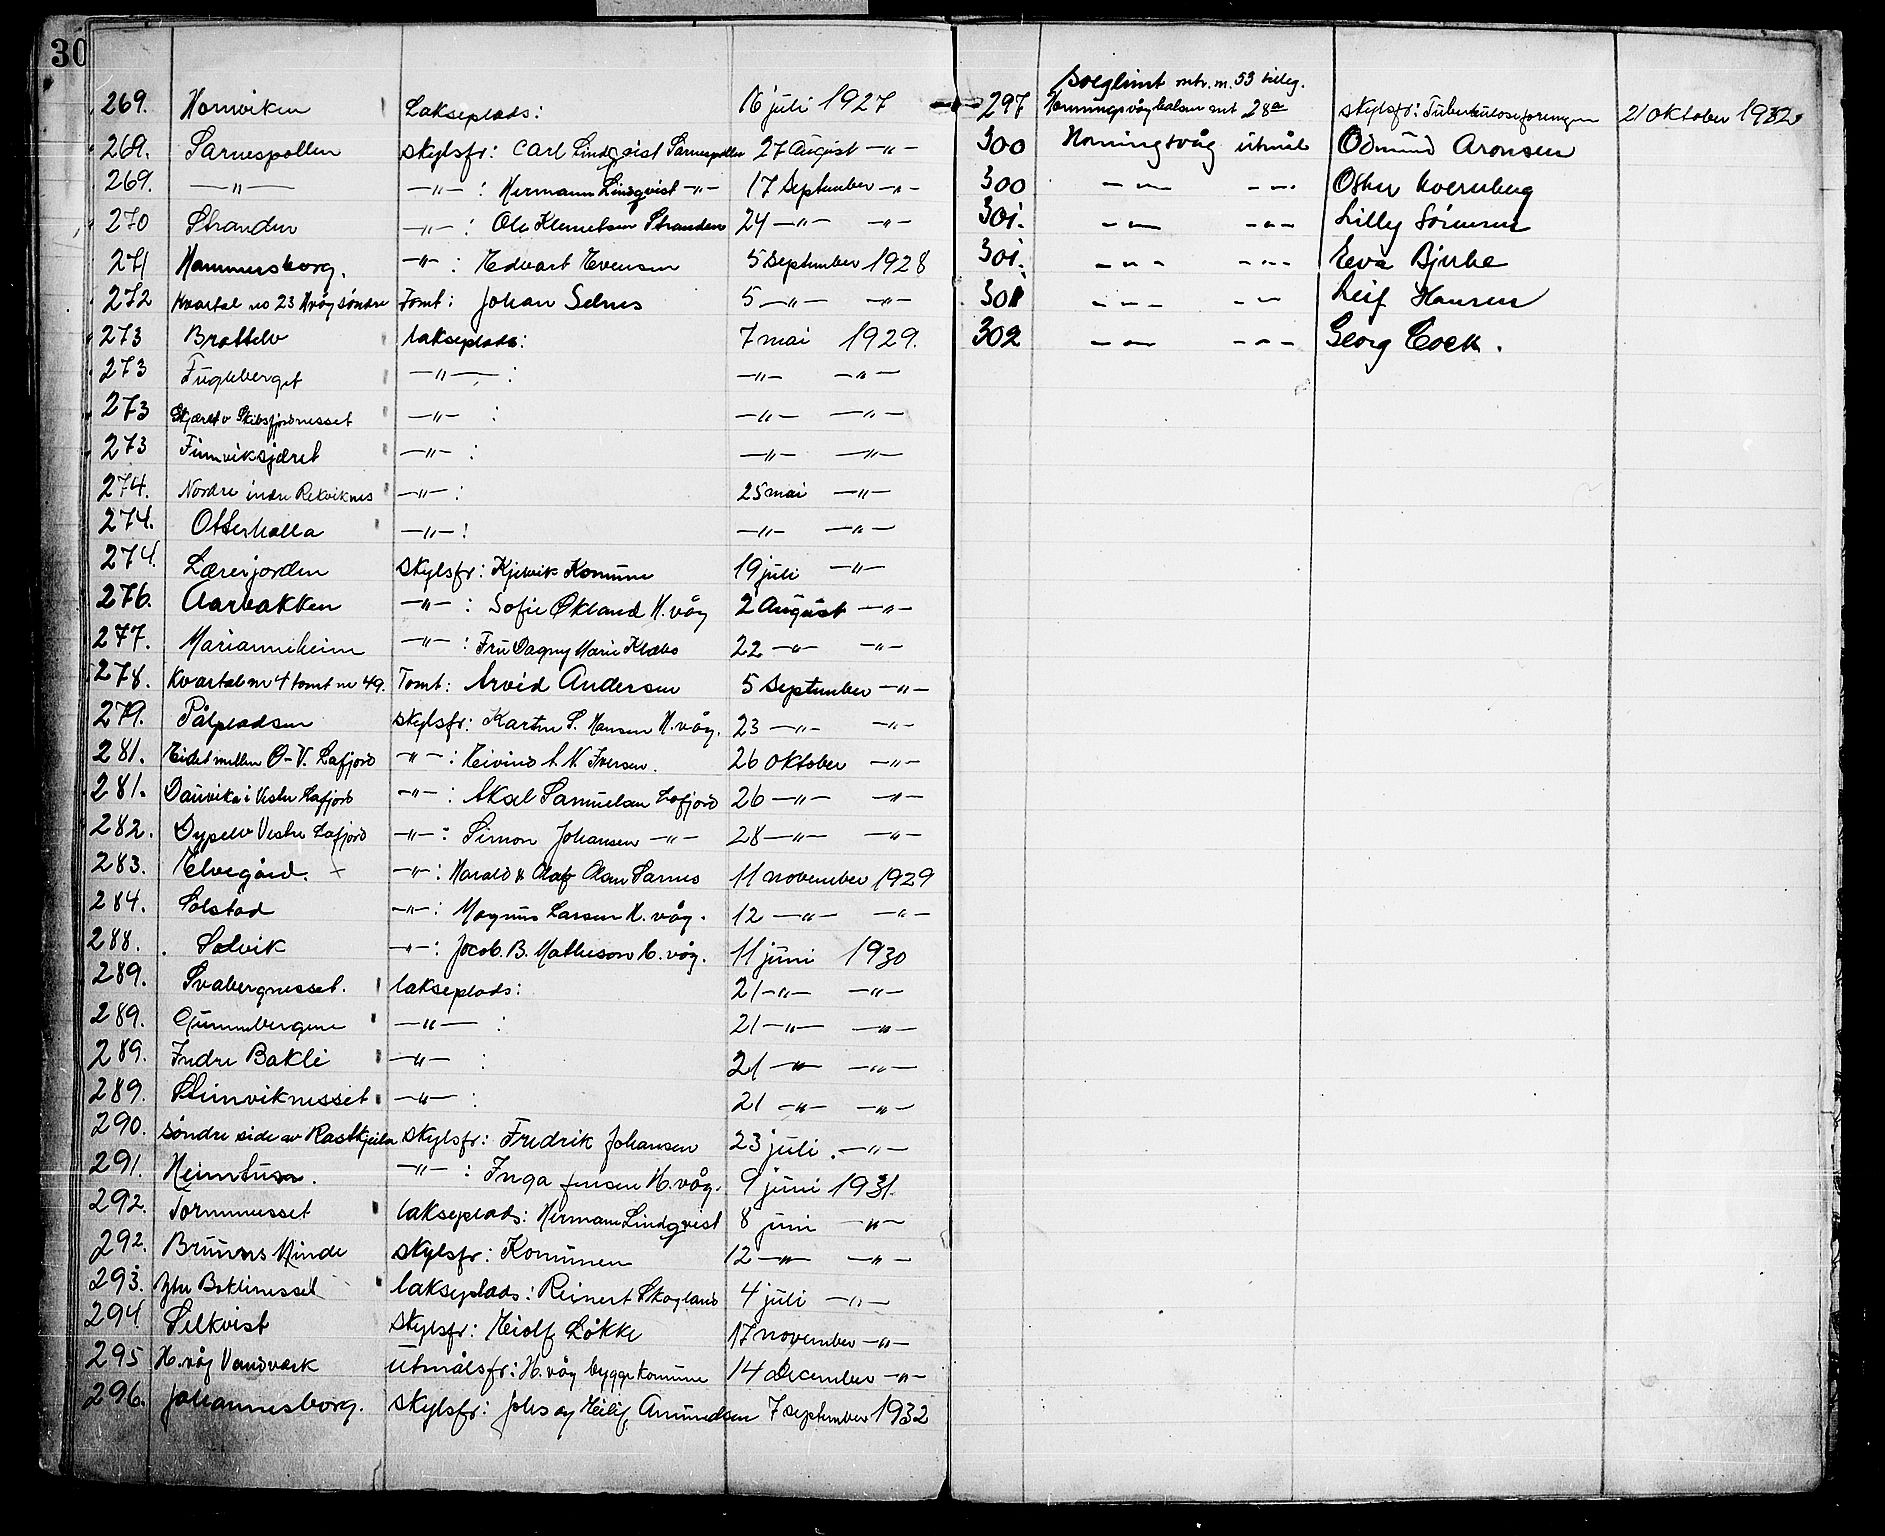 30
269. Hornviken Lakseplads: 16 juli 1927
269. Sarnespollen Skylsfr: Carl Lindqvist Sarnespollen 27 August —"—
269. —"— —"—: Hermann Lindqvist —"— 17 September —"—
270 Stranden —"—: Ole Klemetsen Stranden 24 —"— —"—
271 Hammersborg. —"—: Edvart Evensen 5 September 1928
272 Kvartal no 23 Hvåg søndre Tomt: Johan Selnes 5 —"— —"—
273 Brattelv lakseplads: 7 mai 1929.
273 Fugleberget —"—: —"— —"—
273 Skjæret v Skibsfjordnesset —"—: —"— —"—
273 Finnvikskjæret —"—: —"— —"—
274. Nordre indre Rekviknes —"—: 25 mai —"—
274. Otterhalla —"—: —"— —"—
274. Lærerjorden Skylsfr: Kjelvik Komune 19 juli —"—
276. Aarbakken —"—: Sofie Økland H.våg 2 August —"—
277. Marianneheim —"—: Fru Dagny Marie Klæbo 22 —"— —"—
278. Kvartal nr 4 tomt nr 49. Tomt: Arvid Andersen 5 September —"—
279. Pålpladsen Skylsfr: Karten S. Hansen H.våg. 23 —"— —"—
281. Eidet mellem O-V. Lafjord —"—: Eivind A. N. Iversen. 26 Oktober —"—
281. Dauvika i Vestre Lafjord —"—: Aksel Samuelsen Lafjord 26 —"— —"—
282. Dypelv Vestre Lafjord —"—: Simon Johansen —"— 28 —"— —"—
283. Elvegård. x —"—: Harald & Olaf Olsen Sarnes 11 november 1929
284. Solstad —"—: Magnus Larsen H.våg. 12 —"— —"—
288. Solvik —"—: Jocob. B. Mathieson H.våg. 11 juni 1930
289. Svabergnesset. lakseplads: 21 —"— —"—
289. —"—: 21 —"— —"—
289. Indre Bakli —"—: 21 —"— —"—
289. Steinviknesset —"—: 21 —"— —"—
290. søndre side av Skylsfr: Fredrik Johansen 23 juli. —"—
291. —"—: Inga Jensen H.våg. 9 juni 1931.
292. lakseplads: Hermann Lindqvist 8 juni —"—
292. Bruuns Minde Skylsfr: Komunen 12 —"— —"—
293. Ytre Baklinesset lakseplads: Reinert Skogland 4 juli —"—
294. Selkvist Skylsfr: Eiolf Løkke 17 november —"—
295 H.våg Vandværk Utmålsfr: H.våg bygge komune 14 december —"—
296. Johannesborg. Skylsfr: Johs og Amundsen 7 september 1932
Solglimt mtr. m. 53 tilleg.
297 Honningsvåghalsen mt 28a Skylsfr: Tuberkuloseforeningen 21 Oktober 1932
300 Honingsvåg utmål Odmund Aronsen
300 —"— —"— Osker Kvernberg
301. —"— —"— Lilly Sørensen
301. —"— —"— Eva Bjerke
301 —"— —"— Leif Hansen
302 —"— —"— Georg Cock.